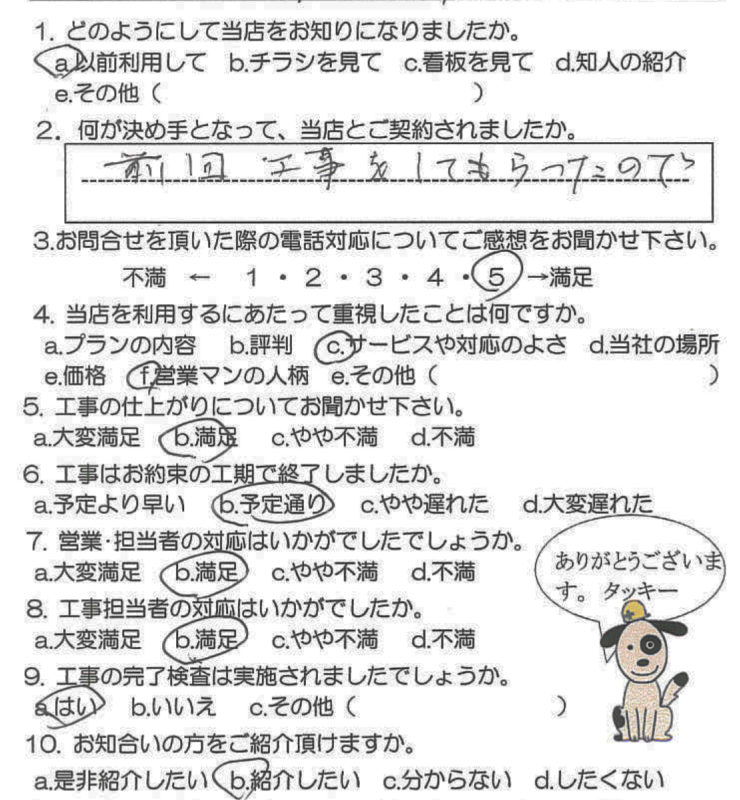 1. どのようにして当店をお知りになりましたか。
a.以前利用して b.チラシを見て c.看板を見て d.知人の紹介
e.その他( )
2. 何が決め手となって、当店とご契約されましたか。
前回 工事をしてもらったので
3.お問合せを頂いた際の電話対応についてご感想をお聞かせ下さい。
不満 ← 1・2・3・4・5→満足
4. 当店を利用するにあたって重視したことは何ですか。
a.プランの内容 b.評判 c.サービスや対応のよさ d.当社の場所
e.価格 f.営業マンの人柄 e.その他( )
5. 工事の仕上がりについてお聞かせ下さい。
a.大変満足 b.満足 c.やや不満 d.不満
6. 工事はお約束の工期で終了しましたか。
a.予定より早い b.予定通り c.やや遅れた d.大変遅れた
7. 営業・担当者の対応はいかがでしたでしょうか。
a.大変満足 b.満足 c.やや不満 d.不満
ありがとうございま
す。 タッキー
8. 工事担当者の対応はいかがでしたか。
a.大変満足 b.満足 c.やや不満 d.不満
9. 工事の完了検査は実施されましたでしょうか。
a.はい b.いいえ c.その他( )
10. お知合いの方をご紹介頂けますか。
a.是非紹介したい b.紹介したい c.分からない d.したくない